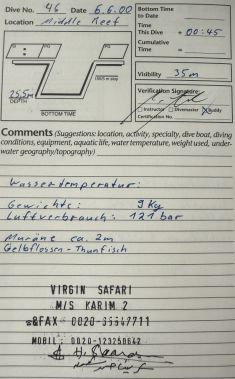 Dive No. 46 Date 6.6.00
Location Middle Reef
Bottom Time
to Date
Time
This Dive + 00:45
Cumulative
Time =
Visibility 35m
Verification Signature:
Instructor Divemaster Buddy
Certification No.
25,5m
DEPTH
BOTTOM TIME
Comments (Suggestions: location, activity, specialty, dive boat, diving
conditions, equipment, aquatic life, water temperature, weight used, under-
water geography/topography)
Wassertemperatur:
Gewichte: 9 Kg
Luftverbrauch: 121 bar
Muräne ca. 2m
Gelbflossen-Thunfisch
VIRGIN SAFARI
M/S KARIM 2
&FAX 0020-35547711
MOBIL: 0020-123250642